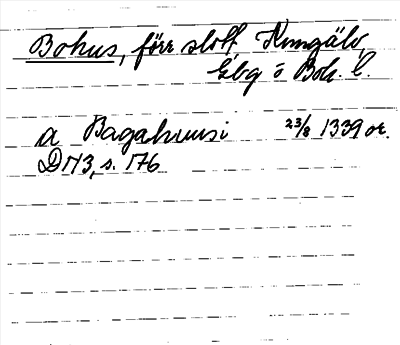 Bohus, förr slott, Kungälv,
Gbg o Boh. l.
a Bagahuusi 23/8 1339 or.
DN 3, s. 176